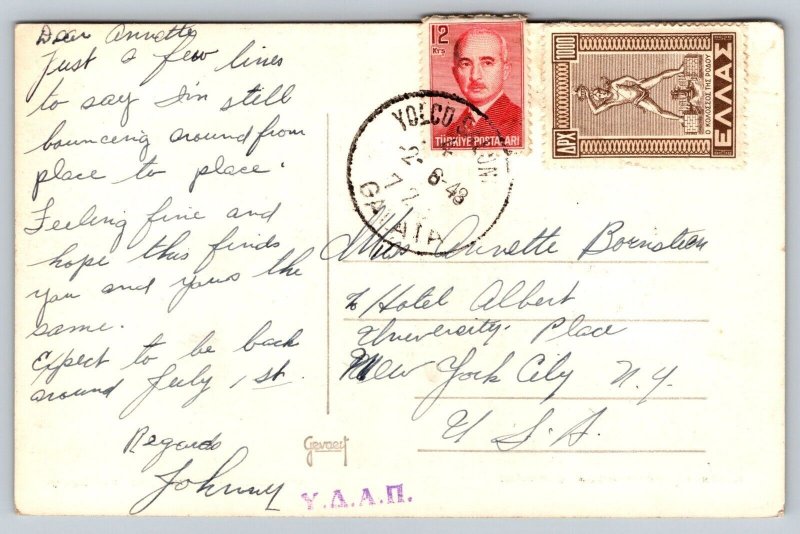 Dear Annette
Just a few lines
to say I'm still
bouncing around from
place to place.
Feeling fine and
hope this finds
you and yours the
same.
Expect to be back
around July 1st.
Regards
Johnny
12
Krş
TÜRKİYE POSTALARI
1000
ΔΡΧ
Ο ΚΟΛΟΣΣΟΣ ΤΗΣ ΡΟΔΟΥ
ΕΛΛΑΣ
YOLCU
2-6-48
GALATA
Miss Annette Bornstein
% Hotel Albert
University Place
New York City N.Y.
U.S.A.
Gevaert
Υ.Δ.Α.Π.